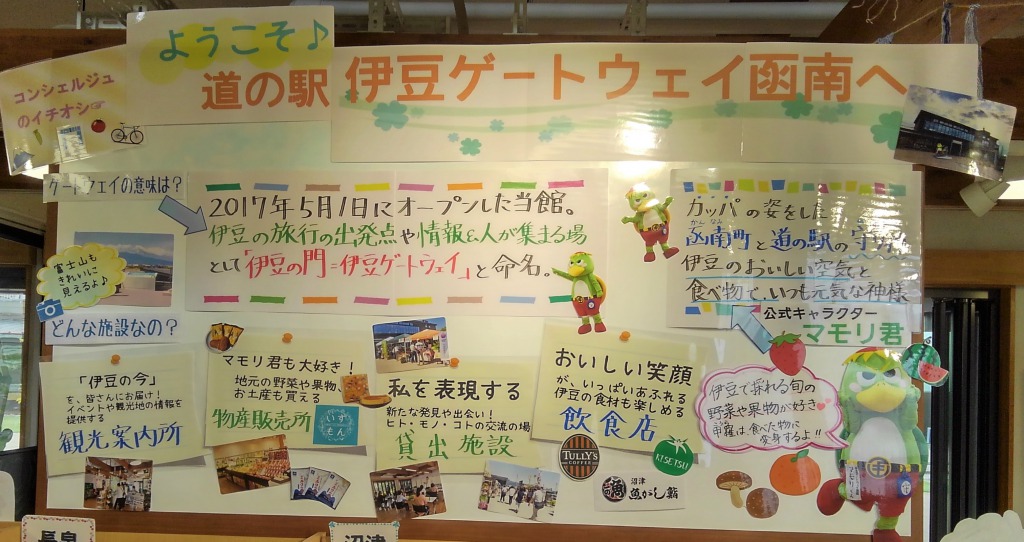 ようこそ♪
道の駅 伊豆ゲートウェイ函南へ
コンシェルジュ
のイチオシ
ゲートウェイの意味は?
2017年5月1日にオープンした当館。
伊豆の旅行の出発点や情報&人が集まる場
として「伊豆の門=伊豆ゲートウェイ」と命名。
富士山も
きれいに
見えるよ♪
カッパの姿をした
かんなみ
函南町と道の駅の守り神
伊豆のおいしい空気と
食べ物で、いつも元気な神様
公式キャラクター
マモリ君
どんな施設なの?
「伊豆の今」
を、皆さんにお届け!
イベントや観光地の情報を
提供する
観光案内所
マモリ君も大好き!
地元の野菜や果物、
お土産も買える
物産販売所
いずもん
私を表現する
新たな発見や出会い!
ヒト・モノ・コトの交流の場
貸出施設
おいしい笑顔
が、いっぱいあふれる
伊豆の食材も楽しめる
飲食店
TULLY'S
COFFEE
KISETSU
沼津
魚がし鮨
伊豆で採れる旬の
野菜や果物が好き
甲羅は食べた物に
変身するよ!!
長泉
沼津